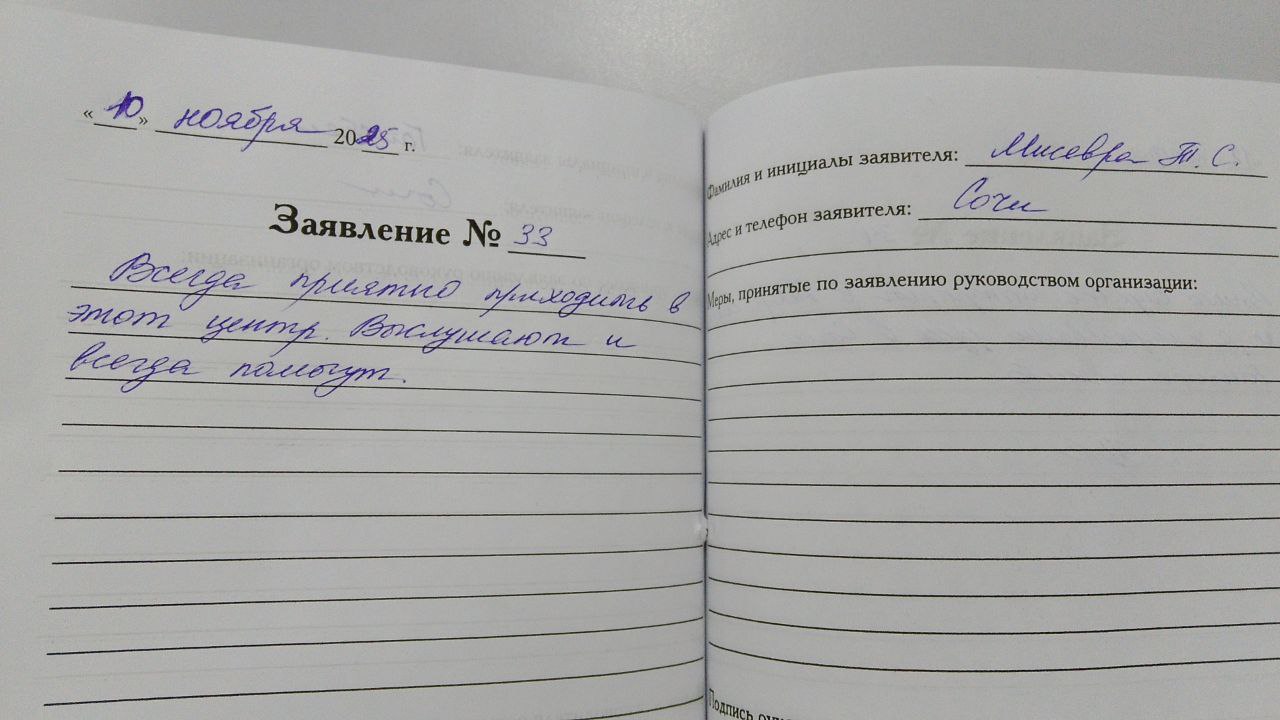 «10» ноября 2025 г.
Заявление № 33
Всегда приятно приходить в
этот центр. Выслушают и
всегда помогут.
Фамилия и инициалы заявителя: Мисевра Т. С.
Адрес и телефон заявителя: Сочи
Меры, принятые по заявлению руководством организации:
Подпись